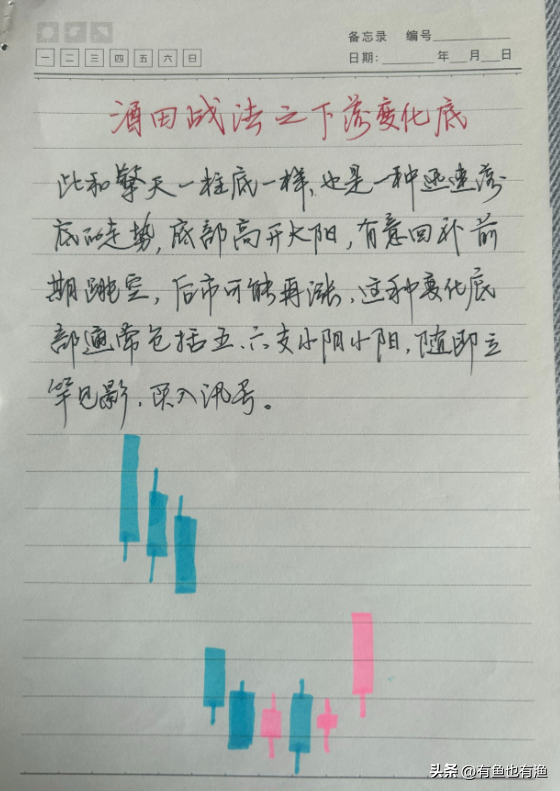 备忘录 编号
一 二 三 四 五 六 日
日期: 年 月 日
酒田战法之下落变化底
此和擎天一柱底一样，也是一种迅速落
底的走势，底部高开大阳，有意回补前
期跳空，后市可能再涨，这种变化底
部通常包括五、六支小阴小阳，随即立
竿见影，买入讯号。
头条 @有鱼也有渔